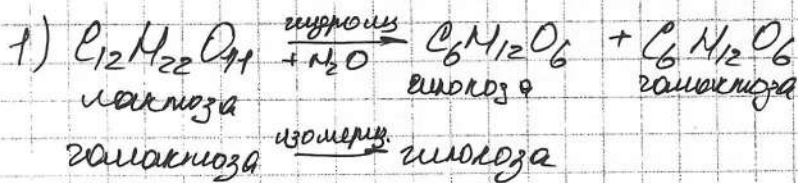 1) C₁₂H₂₂O₁₁ гидролиз +H₂O → C₆H₁₂O₆ + C₆H₁₂O₆
лактоза глюкоза галактоза
галактоза изомериз. → глюкоза